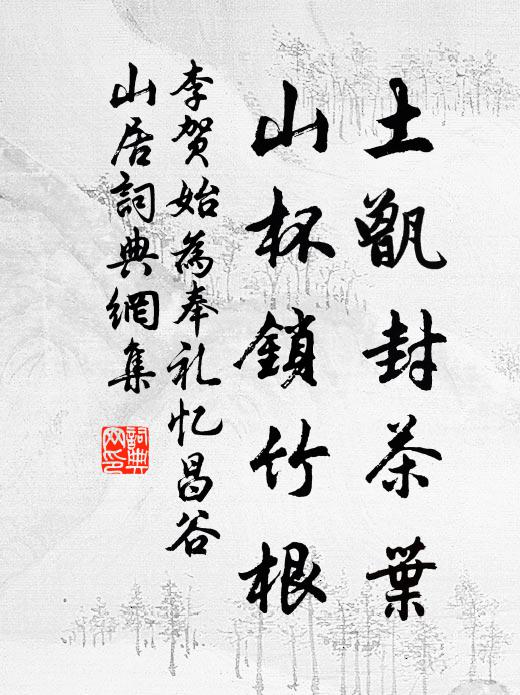 土甑封茶葉
山杯鎖竹根
李贺始為奉礼忆昌谷
山居詞典網集
詞典
网印